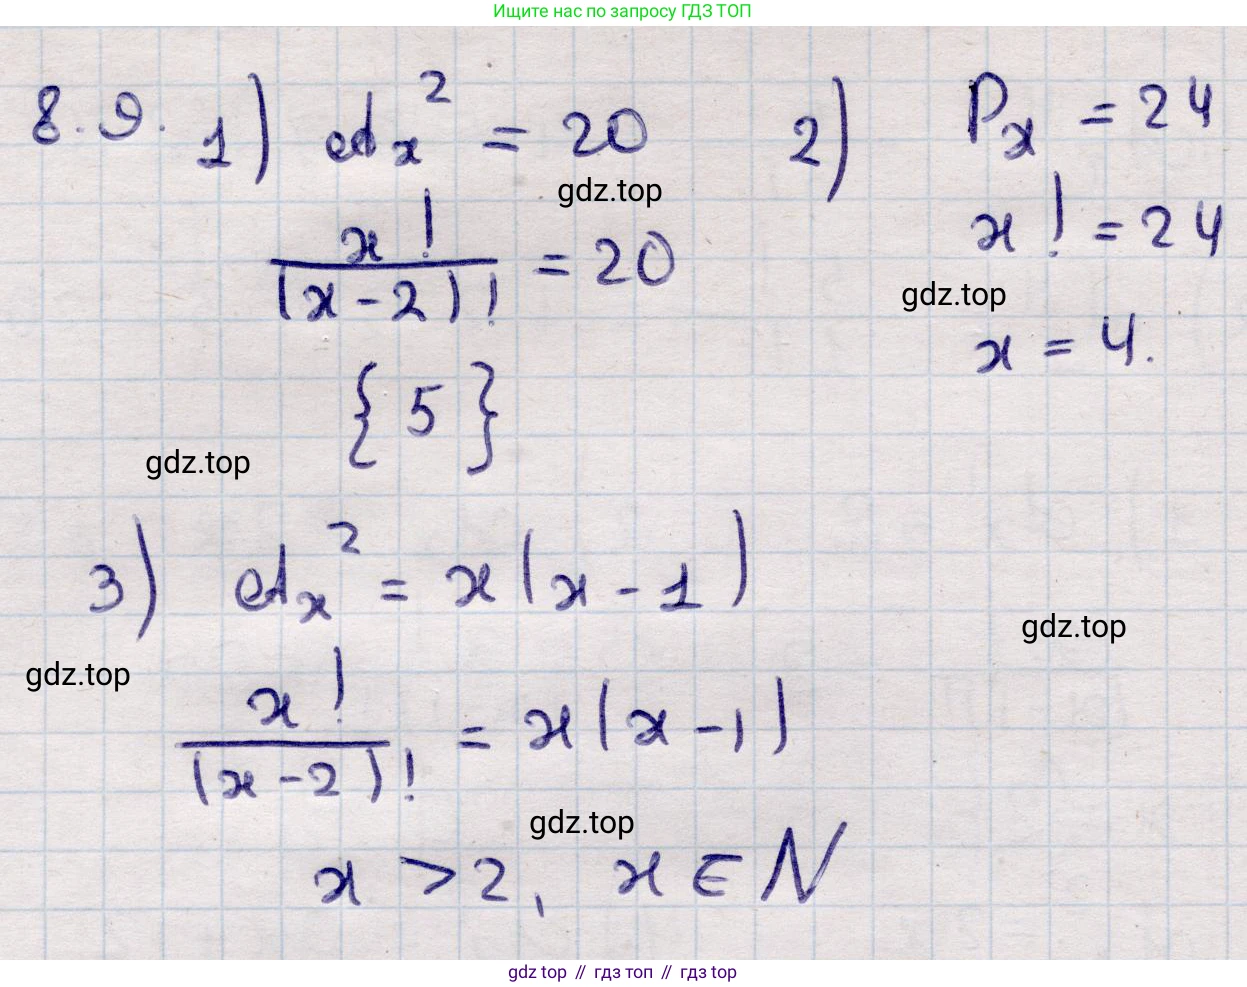 Ищите нас по запросу ГДЗ ТОП
8.9. 1) A_x^2 = 20
gdz.top
x! / (x-2)! = 20
{5}
gdz.top
2) P_x = 24
x! = 24
gdz.top
x = 4.
3) A_x^2 = x(x-1)
gdz.top
gdz.top
x! / (x-2)! = x(x-1)
gdz.top
x > 2, x ∈ N
gdz top // гдз топ // gdz top